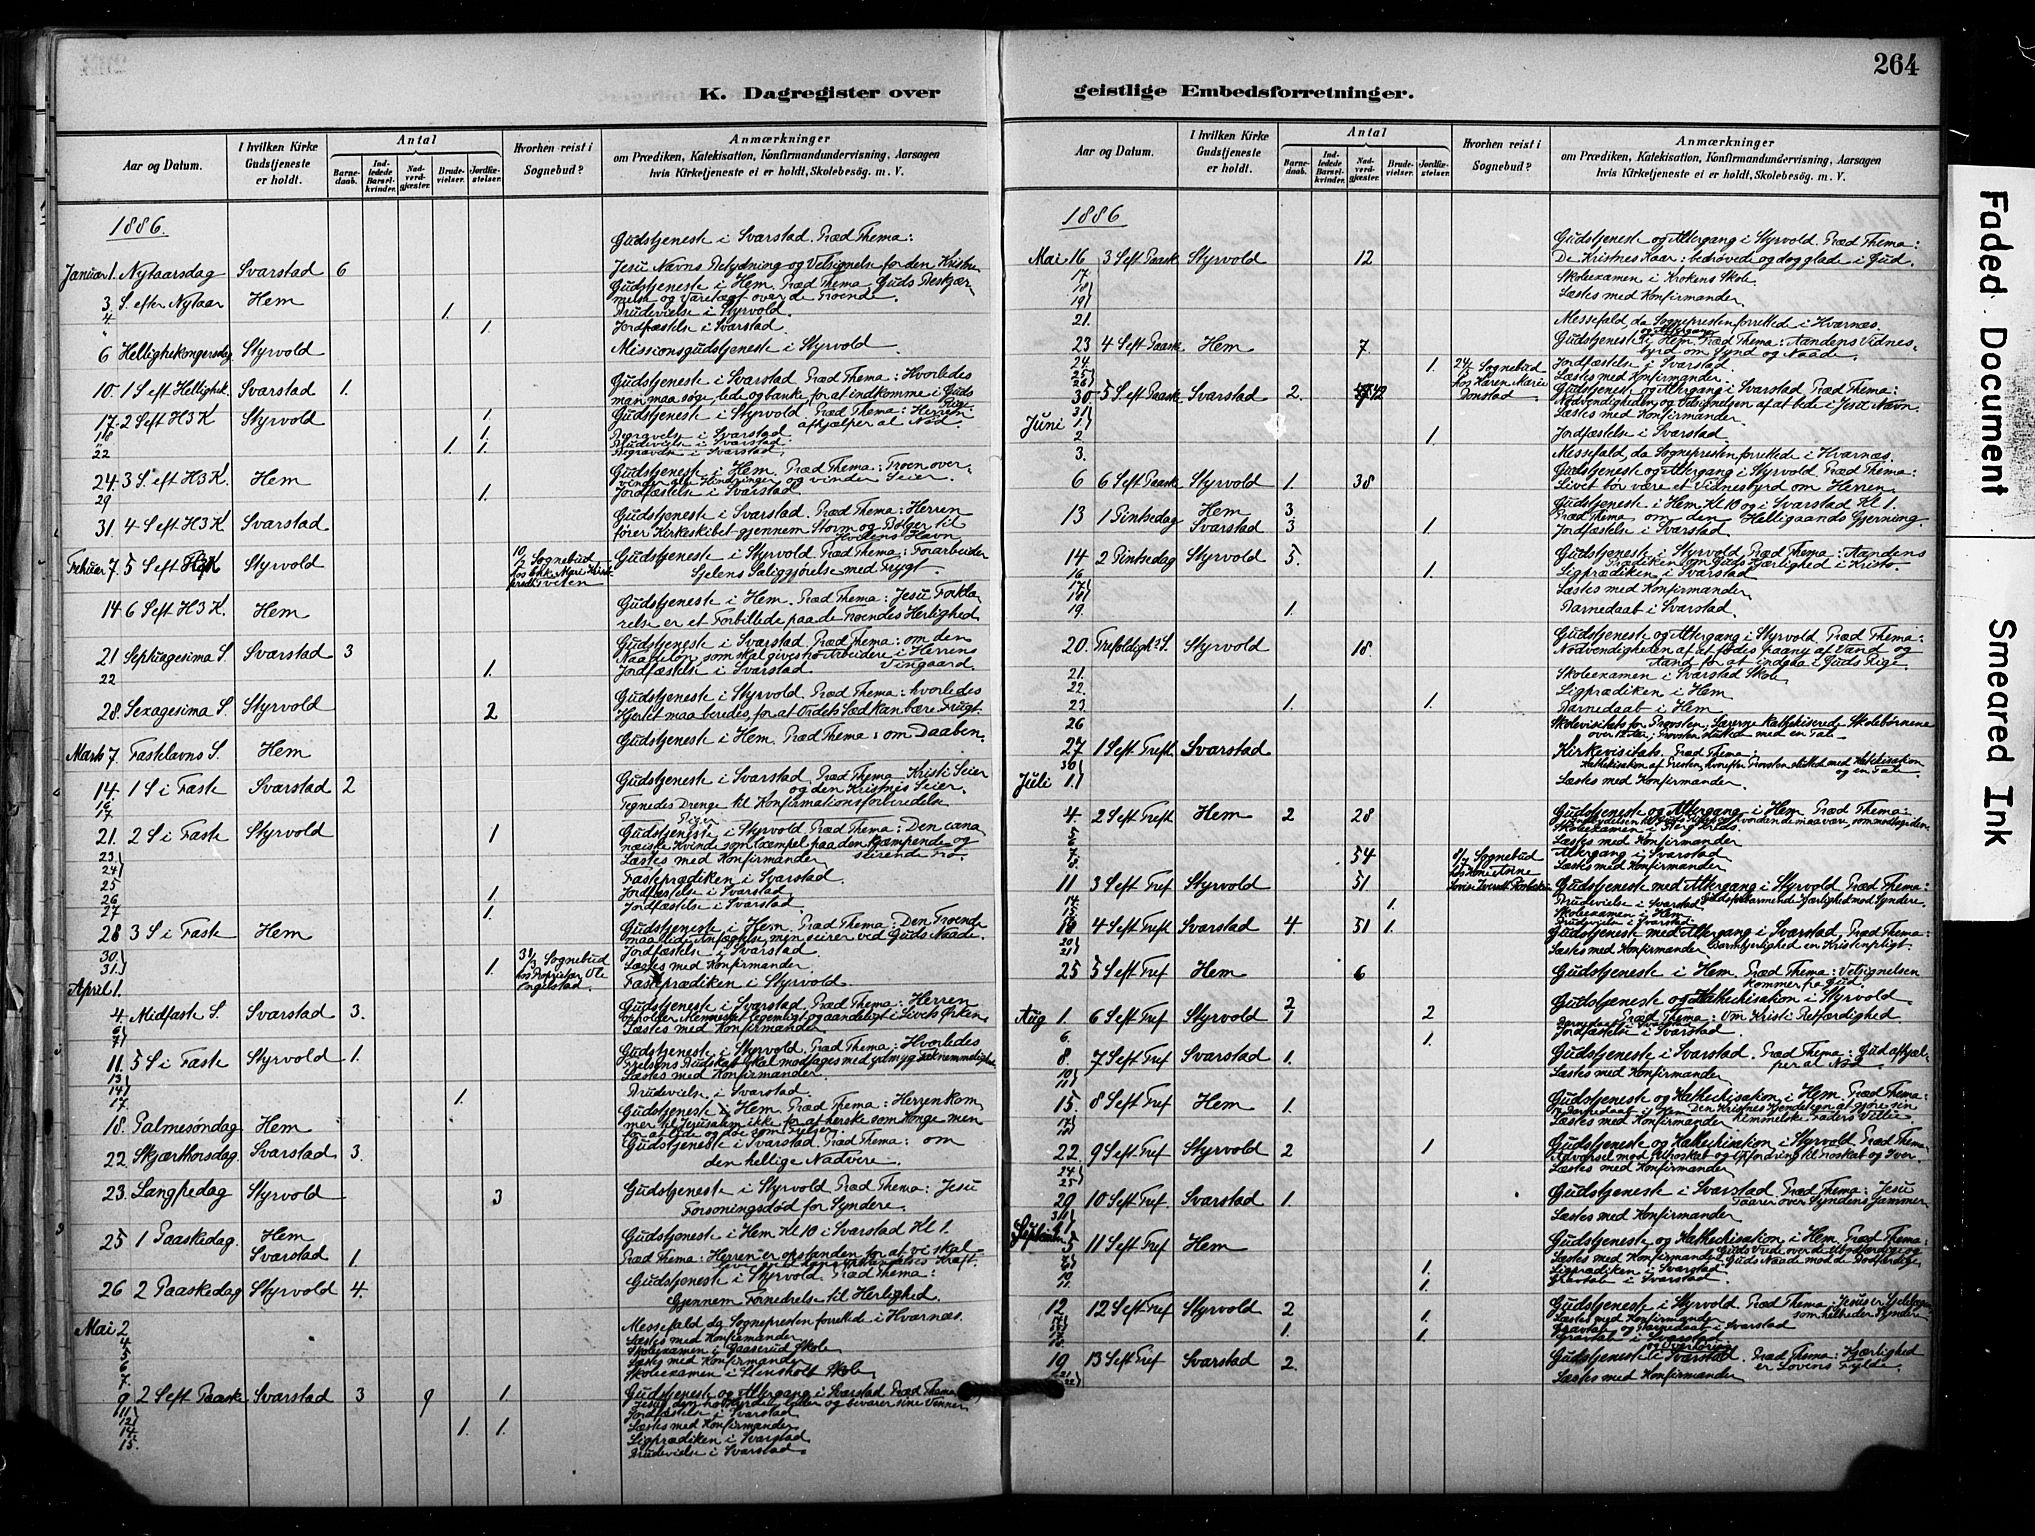 264
K. Dagregister over
geistlige Embedsforretninger.
Aar og Datum.
I hvilken Kirke Gudstjeneste er holdt.
Antal
Barnedaab.
Indledede Barselkvinder.
Nadverdgjæster.
Brudevielser.
Jordfæstelser.
Hvorhen reist i Sognebud?
Anmærkninger
om Prædiken, Katekisation, Konfirmandundervisning, Aarsagen
hvis Kirketjeneste ei er holdt, Skolebesøg. m. V.
1886.
Gudstjeneste i Svarstad. Præd Thema:
Januar 1. Nytaarsdag Svarstad 6 Jesu Navns Betydning og Velsignelse for den Kristne
3. S. efter Nytaar Hem Gudstjeneste i Hem. Præd Thema Guds Beskjær
melse og Varetægt over de Troende.
4. 1. Brudevielse i Styrvold.
" 1. Jordfæstelse i Svarstad.
6 Helligtrekongersdag Styrvold Missionsgudstjeneste i Styrvold
10. 1 S eft Helligtrek. Svarstad 1. Gudstjeneste i Svarstad Præd Thema: Hvorledes
man maa søge, lede og banke, for at indkomme i Guds Rige.
17. 2 S eft H3K Styrvold 1. Gudstjeneste i Styrvold Præd Thema: Herren
afhjælper al Nød.
18 1. Begravelse i Svarstad
22 1. 1. Brudevielse i Svarstad
i Svarstad.
24. 3 S. eft H3K. Hem Gudstjeneste i Hem. Præd Thema: Troen over-
vinder alle Hindringer og vinder Seier.
29 1. Jordfæstelse i Svarstad
31. 4 S eft H3K Svarstad Gudstjeneste i Svarstad. Præd Thema: Herren
fører Kirkeskibet gjennem Storm og Bølger til
Hvilens Havn
Februar 7. 5 S eft Styrvold 10/2 Sognebud Gudstjeneste i Styrvold Præd Thema: Forarbeider
Sjelens Saliggjørelse med Frygt.
14. 6 S eft H3K. Hem Gudstjeneste i Hem. Præd Thema: Jesu Forkla
relse er et Forbillede paa de Troendes Herlighed
21 Septuagesima S. Svarstad 3 Gudstjeneste i Svarstad. Præd Thema: om den
Naadeløn, som skal gives hos Arbeidere i Herrens
Vingaard.
22 1. Jordfæstelse i Svarstad
28. Sexagesima S. Styrvold 2 Gudstjeneste i Styrvold. Præd Thema: hvorledes
Hjertet maa beredes, for at Ordets Sæd kan bære Frugt.
Marts 7. Fastelavns S. Hem Gudstjeneste i Hem. Præd Thema: om Daaben.
14. 1 S i Faste Svarstad 2 Gudstjeneste i Svarstad Præd Thema Kristi Seier
og den Kristnes Seier.
16 Tegnedes Drenge til Konfirmationsforberedelse
17 Piger
21. 2 S i Faste Styrvold 1 Gudstjeneste i Styrvold Præd Thema: Den cana
næiske Kvinde som Exempel paa den kjæmpende og
seirende Tro.
23. Læstes med Konfirmander
24
25 Fasteprædiken i Svarstad.
26 1 Jordfæstelse i Svarstad.
27 1. Jordfæstelse i Svarstad
28 3 S i Faste Hem Gudstjeneste i Hem. Præd Thema: Den Troende
maa lide Anfægtelse, men seirer ved Guds Naade.
30. Jordfæstelse i Svarstad.
31. 1. 31/3 Sognebud hos Proprietær Ole Engelstad. Læstes med Konfirmander
April 1. Fasteprædiken i Styrvold
4. Midfaste S. Svarstad 3. Gudstjeneste i Svarstad Præd Thema: Herren
opholder Mennesket legemligt og aandeligt i Livets Ørken.
6 Læstes med Konfirmander
7
11. 5 S i Faste Styrvold 1. Gudstjeneste i Styrvold. Præd Thema: Hvorledes
Frelsens Budskab skal modtages med ydmyg Taknemmelighed
13 Læstes med Konfirmander.
14
17. 1. Brudevielse i Svarstad.
18. Palmesøndag Hem Gudstjeneste i Hem. Præd Thema: Herren kom
mer til Jerusalem ikke for at herske som Konge men
for at lide og døe som Frelser
22. Skjærthorsdag. Svarstad 3. Gudstjeneste i Svarstad Præd Thema: om
den hellige Nadvere.
23. Langfredag Styrvold 3 Gudstjeneste i Styrvold Præd Thema: Jesu
Forsoningsdød for Syndere.
25 1 Paaskedag. Hem Gudstjeneste i Hem Kl 10 i Svarstad Kl 1.
Svarstad 1 Præd Thema: Herren er opstanden for at vi skal
26 2 Paaskedag Styrvold 4. Gudstjeneste i Styrvold. Præd Thema:
Gjennem Fornedrelse til Herlighed.
Mai 2 Messefald da Sognepresten forrettede i Hvarnæs.
4. Læstes med Konfirmander
5 Skoleexamen i Gaaserud Skole
6. Læstes med Konfirmander
7. Skoleexamen i Stensholt Skole
9 2 S eft Paaske Svarstad 3 9 1. Gudstjeneste og Altergang i Svarstad Præd Thema
Jesus den gode Hyrde leder og bevarer sine Venner
11 Jordfæstelse i Svarstad
12 Læstes med Konfirmander
14. 1. 1. Ligprædiken i Svarstad
15. Brudevielse i Svarstad
Aar og Datum.
I hvilken Kirke Gudstjeneste er holdt.
Antal
Barnedaab.
Indledede Barselkvinder.
Nadverdgjæster.
Brudevielser.
Jordfæstelser.
Hvorhen reist i Sognebud?
Anmærkninger
om Prædiken, Katekisation, Konfirmandundervisning, Aarsagen
hvis Kirketjeneste ei er holdt, Skolebesøg. m. V.
1886
Gudstjeneste og Altergang i Styrvold. Præd Thema:
Mai 16 3 S eft Paask Styrvold 12 De Kristnes Kaar: bedrøvede og dog glade i Gud.
17. Skoleexamen i Krokens Skole.
18 Læstes med Konfirmander.
19
21. Messefald da Sognepresten forrettede i Hvarnæs.
23 4 S eft Paask Hem 7 Gudstjeneste og Altergang i Hem. Præd Thema: Aandens Vidnes-
byrd om Synd og Naade.
24. 1. 24/5 Sognebud hos Karen Marie Jordfæstelse i Svarstad.
25 Læstes med Konfirmander
26
30 5 S eft Paask Svarstad 2. Gudstjeneste og Altergang i Svarstad. Præd Thema:
Nødvendigheden og Velsignelsen af at bede i Jesu Navn.
31 Læstes med Konfirmander.
Juni 1.
2 1. Jordfæstelse i Svarstad
3. Messefald da Sognepresten forrettede i Hvarnæs.
6 6 S eft Paask Styrvold 1. 38 Gudstjeneste og Altergang i Styrvold Præd Thema:
Livet bør være et Vidnesbyrd om Herren.
13 1 Pintsedag Hem 3. Gudstjeneste i Hem Kl 10 og i Svarstad Kl 1.
Svarstad 3. 1. Præd Thema om den Helligaands Gjerning
Jordfæstelse i Svarstad.
14 2 Pintsedag Styrvold 5. Gudstjeneste i Styrvold Præd Thema: Aandens
Prædiken om Guds Kjærlighed i Kristo.
16 1. Ligprædiken i Svarstad
17 Læstes med Konfirmander
18
19. 1. Barnedaab i Svarstad
20. Trefoldigh. S. Styrvold 18 Gudstjeneste og Altergang i Styrvold Præd Thema:
Nødvendigheden af at fødes paany af Vand og
Aand for at indgaa i Guds Rige
21. Skoleexamen i Svarstad Skole
22. Ligprædiken i Hem
23 1. 1. Barnedaab i Hem
26 Skolevisitats for Provsten. Lærerne Kathekiserede Skolebørnene
27 1 S eft Treft Svarstad Kirkevisitats. Præd Thema:
Kathekisation af Presten, hvorefter Provsten sluttede med Kathekisation
og en Tale.
30
Juli 1. Læstes med Konfirmander
4. 2 S eft Treft Hem 2 28 Gudstjeneste og Altergang i Hem Præd Thema:
5 Skoleexamen i
6 Læstes med Konfirmander
7 54 8/7 Sognebud Altergang i Svarstad
8. Læstes med Konfirmander
11 3 S eft Tref Styrvold 31 Gudstjeneste med Altergang i Styrvold Præd Thema:
Guds forbarmende Kjærlighed mod Syndere.
14. 1. Brudevielse i Svarstad
15. Skoleexamen i Hem
18 4 S eft Treft Svarstad 4 31 1. Gudstjeneste med Altergang i Svarstad. Præd Thema:
Barmhjertighed en Kristenpligt.
20 Læstes med Konfirmander
21
25 5 S eft Tref Hem 6 Gudstjeneste i Hem Præd Thema: Velsignelsen
kommer fra Gud.
Aug 1. 6 S eft Tref Styrvold 2 1 2 Gudstjeneste og Kathechisation i Styrvold.
Præd Thema: Om Kristi Retfærdighed
6. 1. Jordfæstelse i Svarstad.
8 7 S eft Tref Svarstad 1. Gudstjeneste i Svarstad Præd Thema: Gud afhjæl-
per al Nød.
10 Læstes med Konfirmander
11
15. 8 S eft Tref Hem 1. Gudstjeneste og Kathechisation i Hem. Præd Thema:
Den Kristnes Kjendetegn at gjøre sin
himmelske Faders Villie
17 Læstes med Konfirmander
18
22. 9 S eft Tref Styrvold 2 1 Gudstjeneste og Kathechisation i Styrvold Præd Thema
24 Læstes med Konfirmander
25
29 10 S eft Tref Svarstad 1. Gudstjeneste i Svarstad. Præd Thema: Jesu
Taarer over Syndens Jammer
31 Læstes med Konfirmander
September 1
5 11 S eft Tref Hem Gudstjeneste og Kathechisation i Hem. Præd Thema:
Læstes med Konfirmander
10 1. Ligprædiken i Svarstad
11. 1. Gravtale i Svarstad
12 12 S eft Tref Styrvold 2 1. Gudstjeneste i Styrvold Præd Thema
Læstes med Konfirmander
1. Gravtale og Barnedaab i Svarstad
1. Gravtale i Svarstad
19 13 S eft Tref Svarstad 2. Gudstjeneste i Svarstad. Præd Thema: Kjærlighed
er Lovens Fylde.
21 Læstes med Konfirmander
22
Faded Document
Smeared Ink